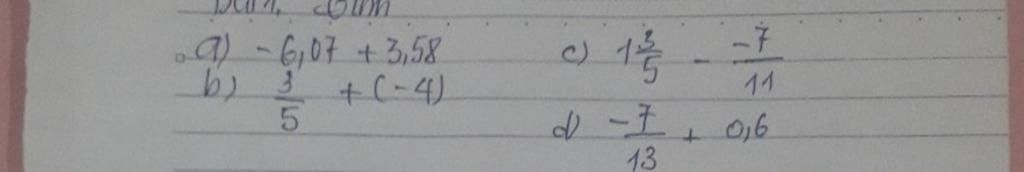 a) -6,07 + 3,58
b) 3/5 + (-4)
c) 1 3/5 - -7/11
d) -7/13 + 0,6